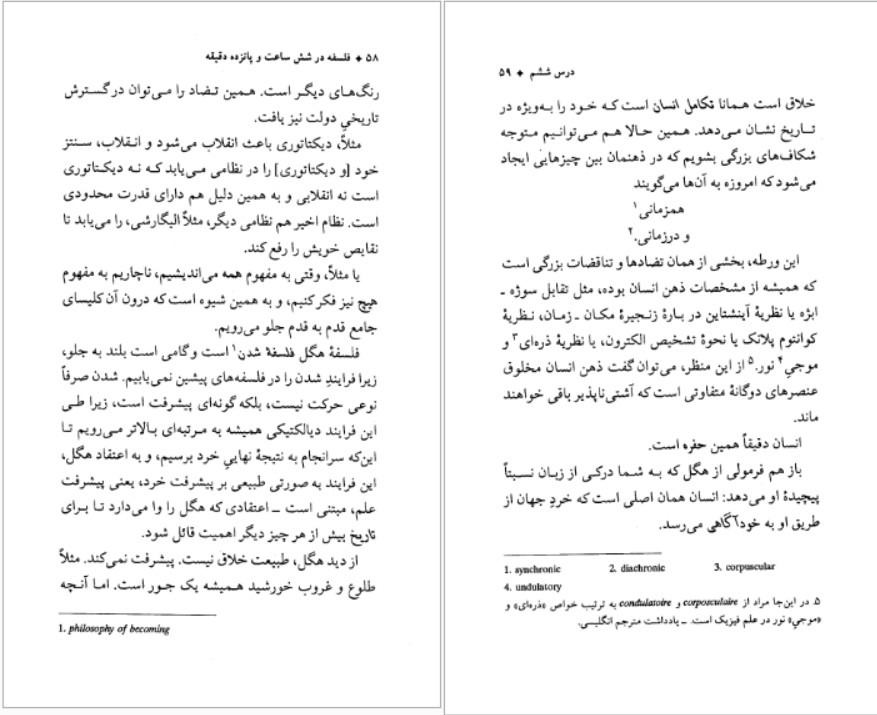 ۵۸ ♦ فلسفه در شش ساعت و پانزده دقیقه
رنگ‌های دیگر است. همین تضاد را می‌توان در گسترش
تاریخیِ دولت نیز یافت.
مثلاً، دیکتاتوری باعث انقلاب می‌شود و انقلاب، سنتز
خود [و دیکتاتوری] را در نظامی می‌یابد که نه دیکتاتوری
است نه انقلابی و به همین دلیل هم دارای قدرت محدودی
است. نظام اخیر هم نظامی دیگر، مثلاً الیگارشی، را می‌یابد تا
نقایص خویش را رفع کند.
یا مثلاً، وقتی به مفهوم همه می‌اندیشیم، ناچاریم به مفهوم
هیچ نیز فکر کنیم، و به همین شیوه است که درون آن کلیسای
جامع قدم به قدم جلو می‌رویم.
فلسفهٔ هگل فلسفهٔ شدن۱ است و گامی است بلند به جلو،
زیرا فرایندِ شدن را در فلسفه‌های پیشین نمی‌یابیم. شدن صرفاً
نوعی حرکت نیست، بلکه گونه‌ای پیشرفت است، زیرا طی
این فرایند دیالکتیکی همیشه به مرتبه‌ای بالاتر می‌رویم تا
این‌که سرانجام به نتیجهٔ نهاییِ خرد برسیم، و به اعتقاد هگل،
این فرایند به صورتی طبیعی بر پیشرفت خرد، یعنی پیشرفت
علم، مبتنی است ــ اعتقادی که هگل را وا می‌دارد تا برای
تاریخ بیش از هر چیز دیگر اهمیت قائل شود.
از دید هگل، طبیعت خلاق نیست. پیشرفت نمی‌کند. مثلاً
طلوع و غروب خورشید همیشه یک جور است. اما آنچه
1. philosophy of becoming
درس ششم ♦ ۵۹
خلاق است همانا تکامل انسان است که خود را به‌ویژه در
تاریخ نشان می‌دهد. همین حالا هم می‌توانیم متوجه
شکاف‌های بزرگی بشویم که در ذهنمان بین چیزهایی ایجاد
می‌شود که امروزه به آن‌ها می‌گویند
همزمانی۱
و درزمانی.۲
این ورطه، بخشی از همان تضادها و تناقضات بزرگی است
که همیشه از مشخصات ذهن انسان بوده، مثل تقابل سوژه ـ
ابژه یا نظریهٔ آینشتاین در بارهٔ زنجیرهٔ مکان ـ زمان، نظریهٔ
کوانتوم پلانک یا نحوهٔ تشخیص الکترون، یا نظریهٔ ذره‌ای۳ و
موجیِ۴ نور.۵ از این منظر، می‌توان گفت ذهن انسان مخلوق
عنصرهای دوگانهٔ متفاوتی است که آشتی‌ناپذیر باقی خواهند
ماند.
انسان دقیقاً همین حفره است.
باز هم فرمولی از هگل که به شما درکی از زبان نسبتاً
پیچیدهٔ او می‌دهد: انسان همان اصلی است که خردِ جهان از
طریق او به خودآگاهی می‌رسد.
1. synchronic 2. diachronic 3. corpuscular
4. undulatory
۵. در این‌جا مراد از corposculaire و condulatoire به ترتیب خواص «ذره‌ای» و
«موجیِ» نور در علم فیزیک است. ــ یادداشت مترجم انگلیسی.